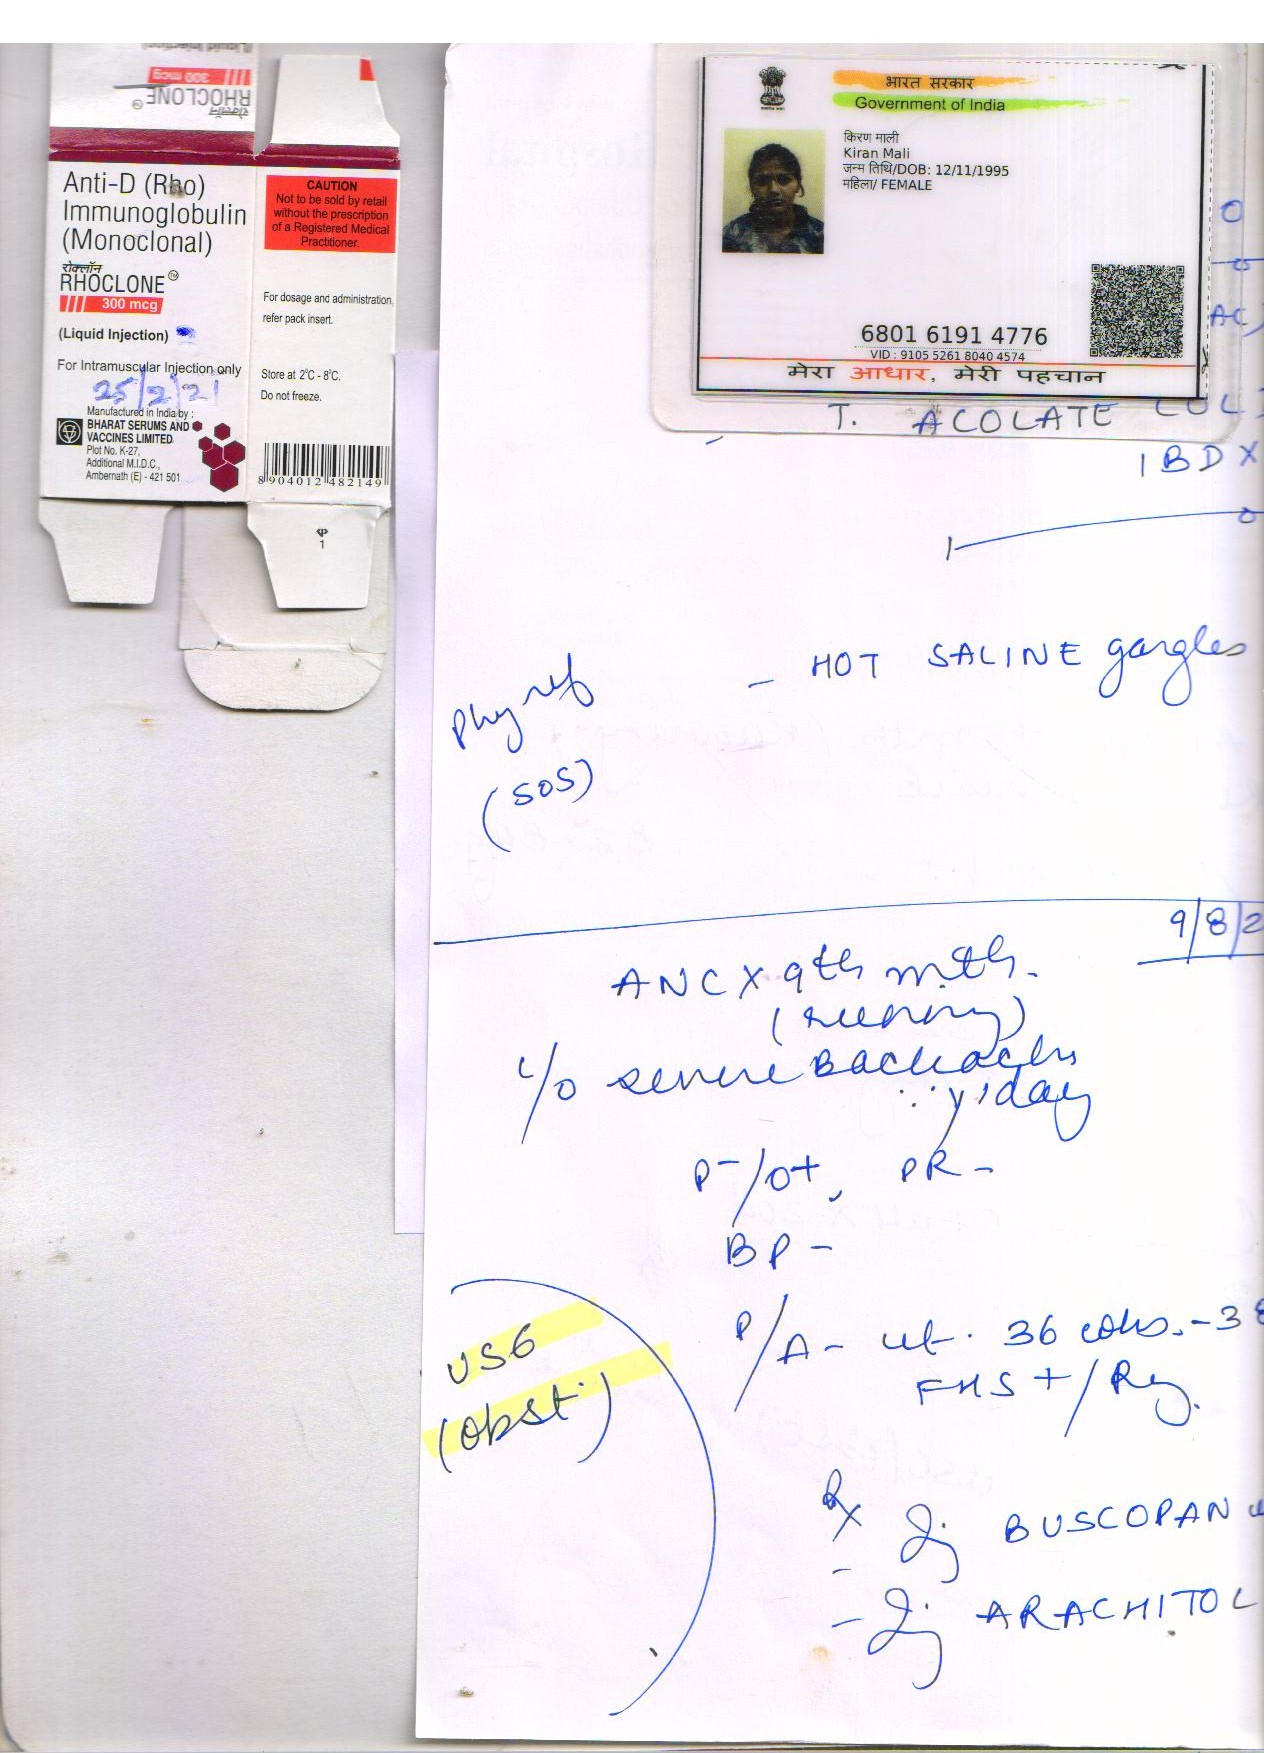 300 mcg
RHOCLONE™
रोक्लॉन
Anti-D (Rho)
Immunoglobulin
(Monoclonal)
रोक्लॉन
RHOCLONE™
300 mcg
(Liquid Injection)
For Intramuscular Injection only
25/2/21
Manufactured in India by :
BHARAT SERUMS AND
VACCINES LIMITED
Plot No. K-27,
Additional M.I.D.C.,
Ambernath (E) - 421 501
CAUTION
Not to be sold by retail
without the prescription
of a Registered Medical
Practitioner.
For dosage and administration,
refer pack insert.
Store at 2°C - 8°C.
Do not freeze.
8 904012 482149
1
भारत सरकार
Government of India
किरण माली
Kiran Mali
जन्म तिथि/DOB: 12/11/1995
महिला/ FEMALE
6801 6191 4776
VID : 9105 5261 8040 4574
मेरा आधार, मेरी पहचान
T. ACOLATE
1 BDX
- HOT SALINE gargles
Phy ref
(SOS)
9/8/2
ANC X 9th mth.
(running)
c/o severe Backache
1 day
P-/O+, PR -
BP -
P/A - ut. 36 - 38
FHS +/Reg.
USG
(obst.)
Rx
Inj BUSCOPAN
- Inj ARACHITOL